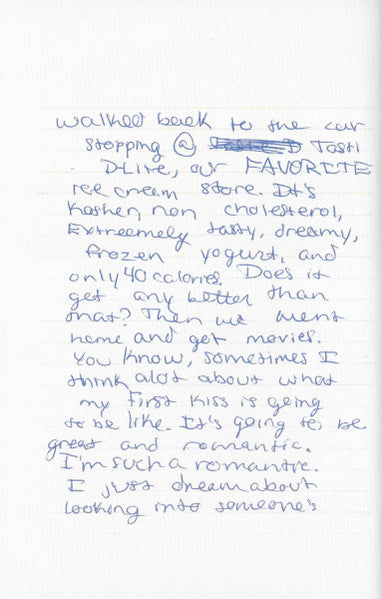 walked back to the car
stopping @ Tasti
D-Lite, our FAVORITE
ice cream store. It's
Kosher, non cholesterol,
Extreemely tasty, dreamy,
frozen yogurt, and
only 40 calories. Does it
get any better than
that? Then we went
home and get movies.
You know, sometimes I
think alot about what
my first kiss is going
to be like. It's going to be
great and romantic.
I'm such a romantic.
I just dream about
looking into someone's